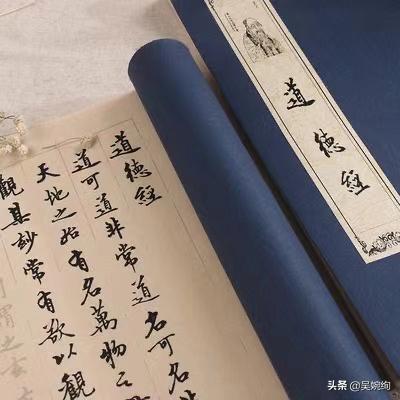 道德經
道德經
道可道非常道名可名非
天地之始有名萬物之
觀其妙常有欲以觀
謂之玄
头条 @吴婉绚